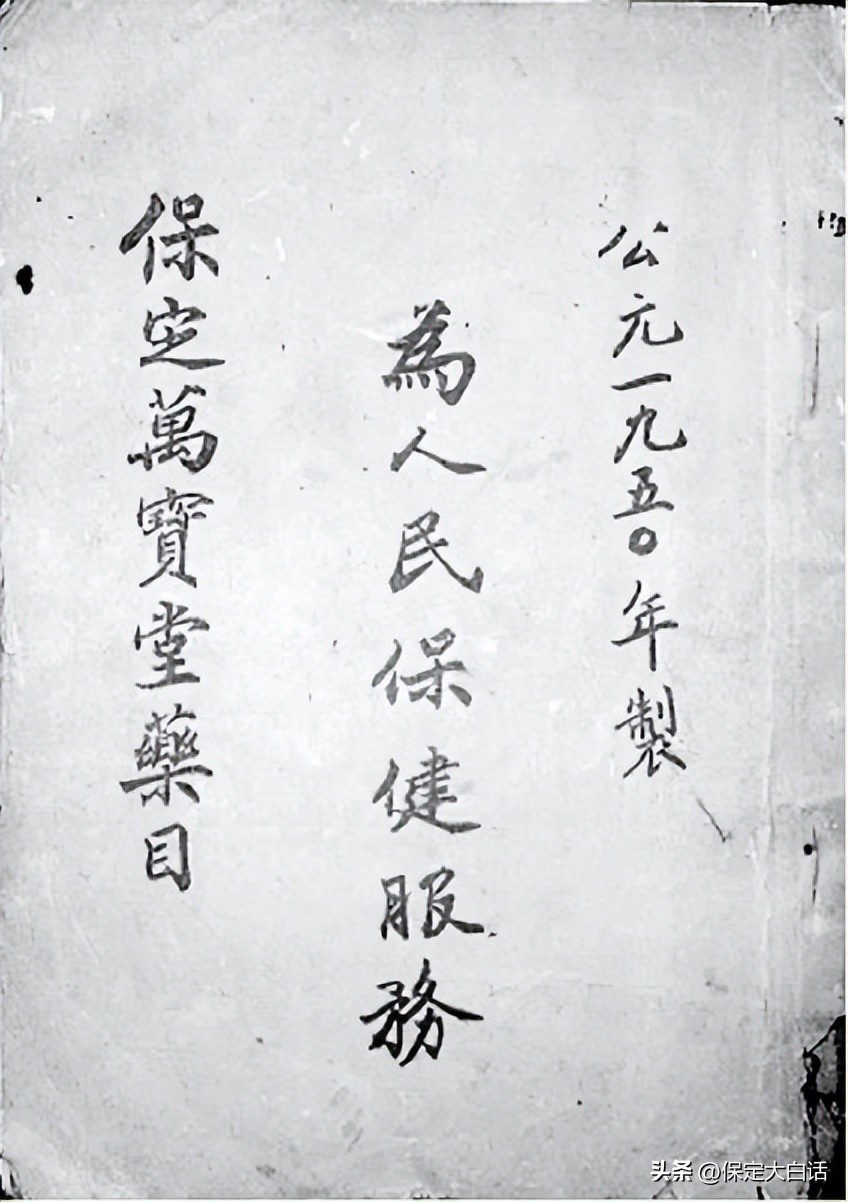 公元一九五〇年製
為人民保健服務
保定萬寶堂藥目
头条 @保定大白话